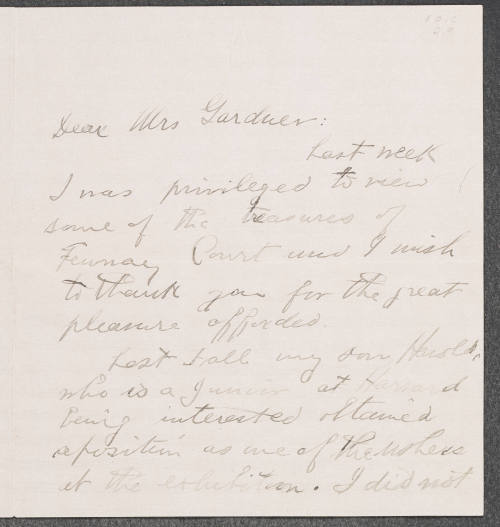 Dear Mrs Gardner:
Last week
I was privileged to view
some of the treasures of
Fenway Court and I wish
to thank you for the great
pleasure afforded.
Last Fall my son Harold,
who is a Junior at Harvard
being interested obtained
a position as one of the ushers
at the exhibition. I did not